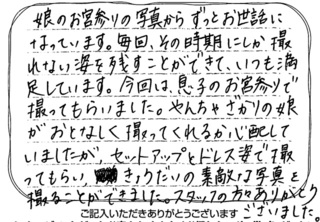 娘のお宮参りの写真からずっとお世話に
なっています。毎回、その時期にしか撮
れない姿を残すことができて、いつも満
足しています。今回は、息子のお宮参りで
撮ってもらいました。やんちゃざかりの娘
がおとなしく撮ってくれるか心配して
いましたが、セットアップとドレス姿で撮
ってもらい、きょうだいの素敵な写真を
撮ることができました。スタッフの方々ありがとう
ございました。
ご記入いただきありがとうございます